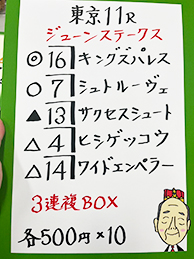 東京11R
ジューンステークス
◎16 キングズパレス
○7 シュトルーヴェ
▲13 サクセスシュート
△4 ヒシゲッコウ
△14 ワイドエンペラー
3連複BOX
各500円×10